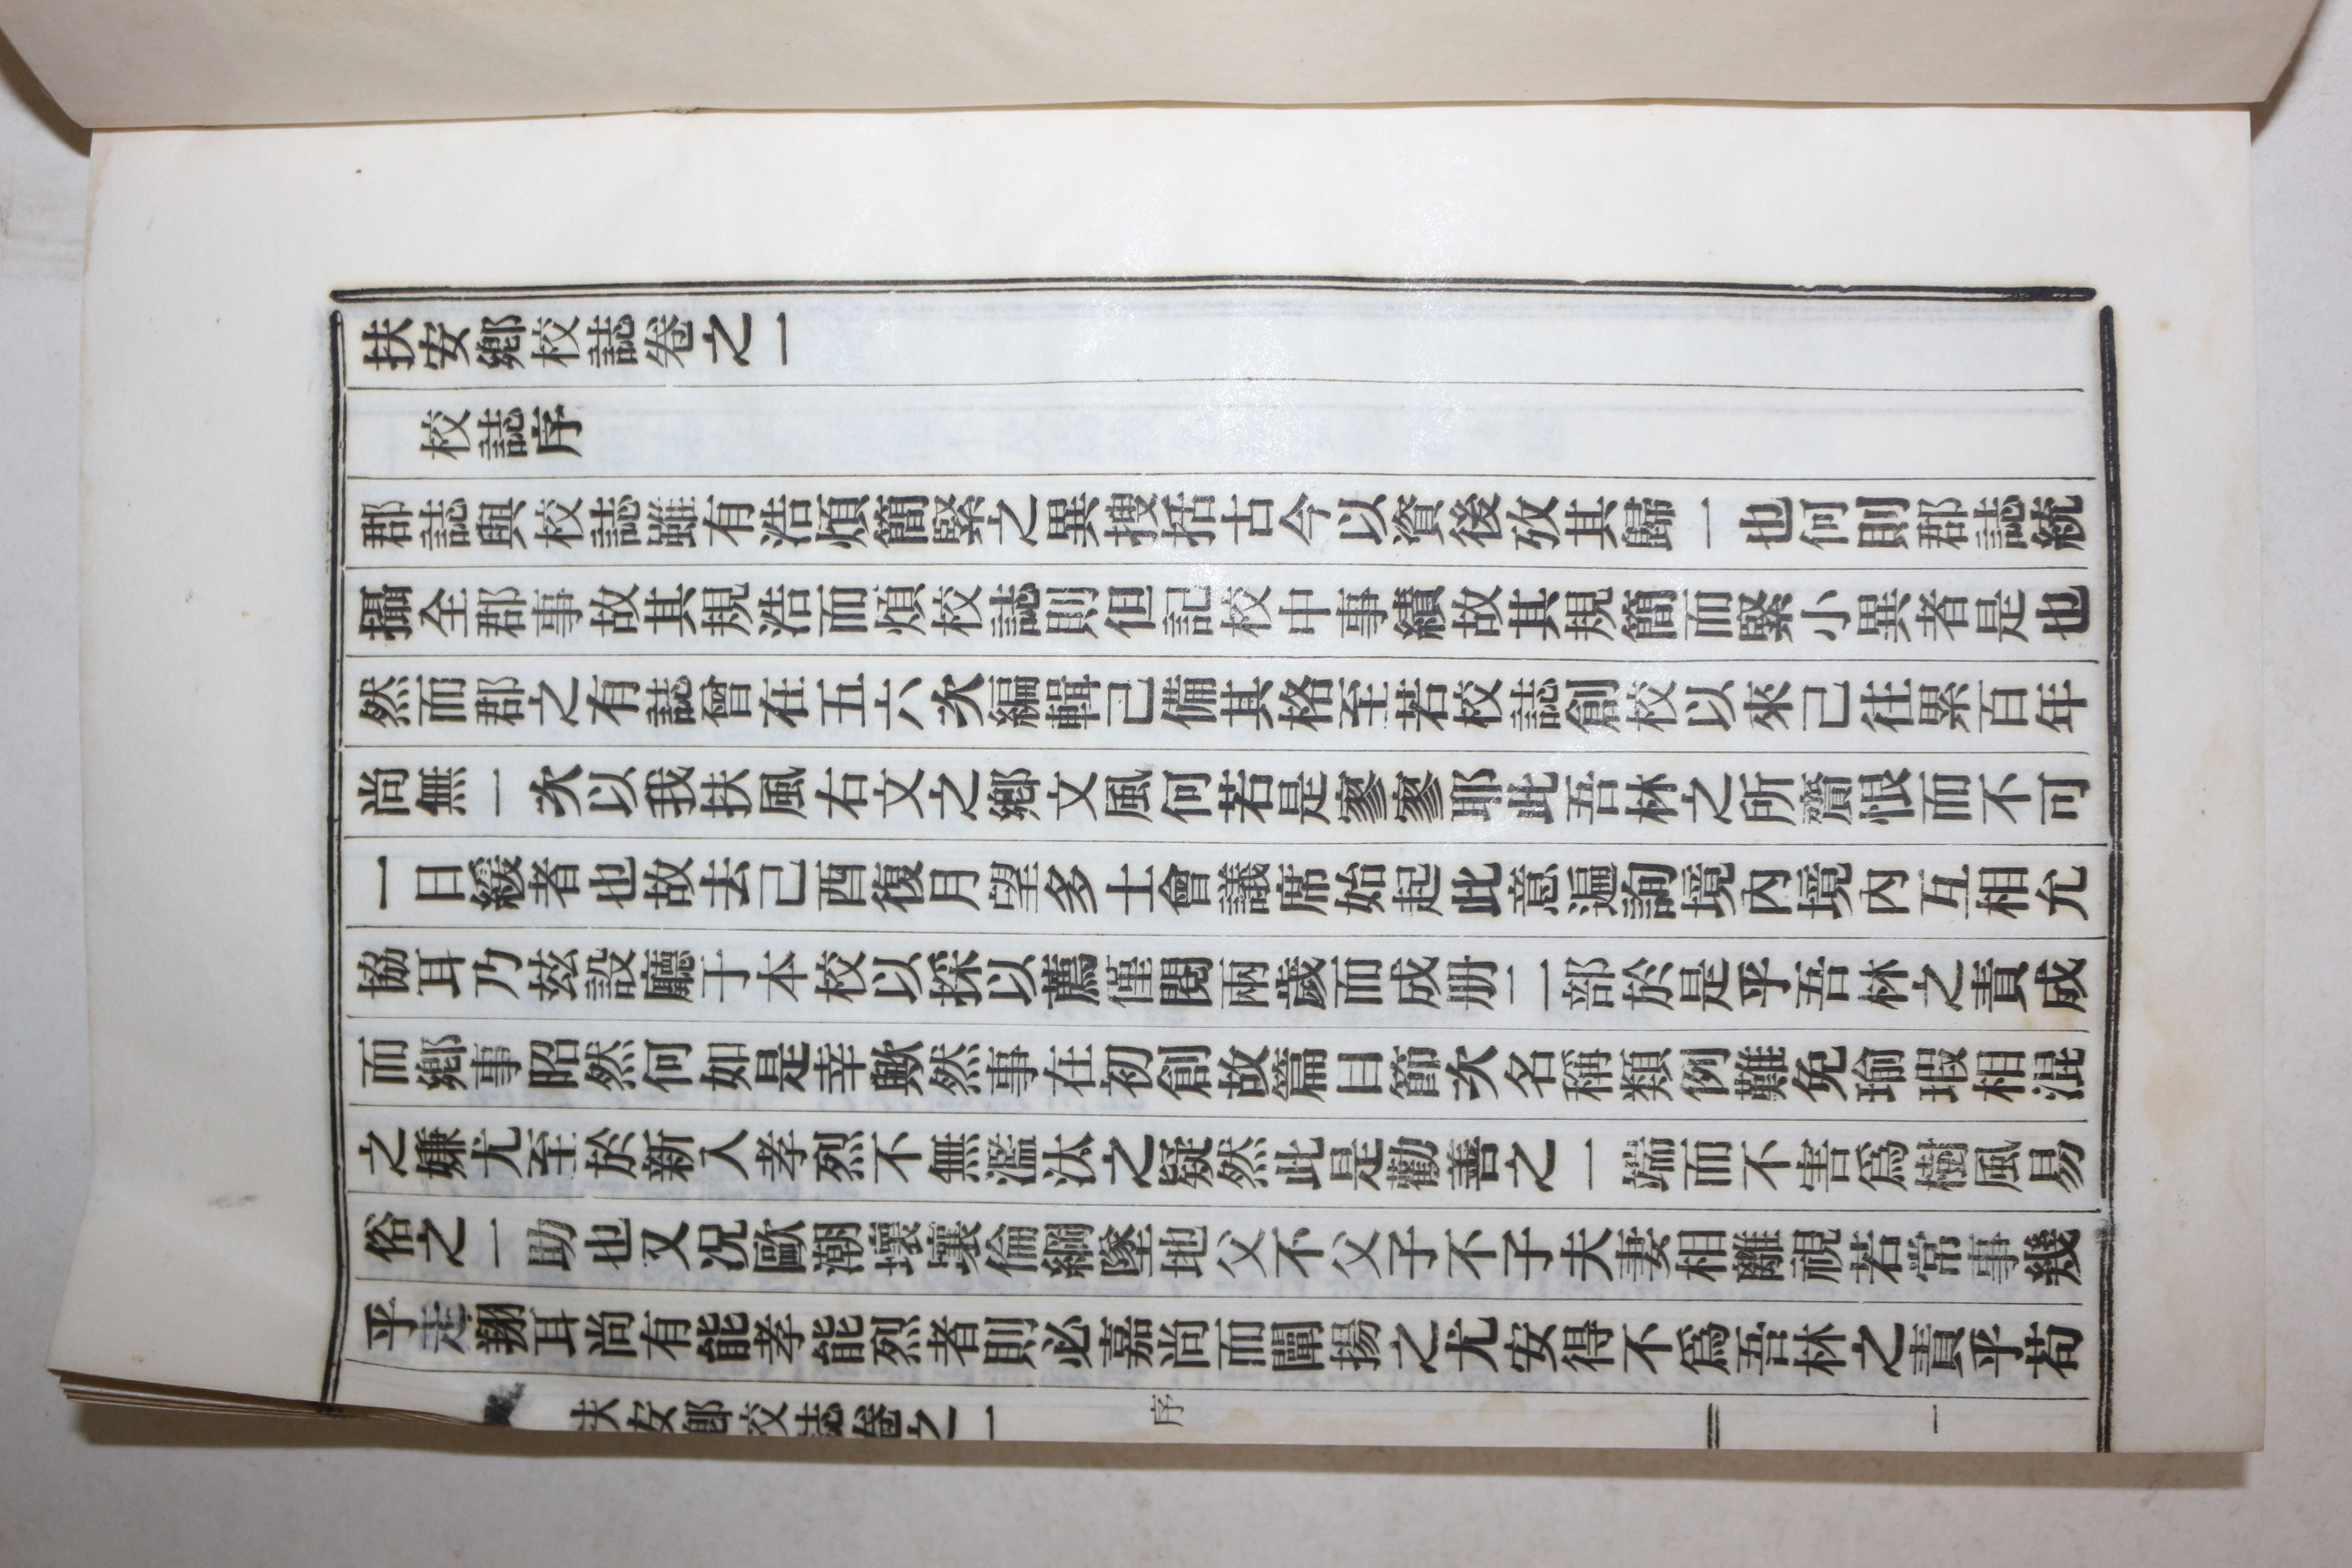 扶安鄕校誌卷之一
校誌序
郡誌與校誌雖有浩煩簡緊之異搜括古今以資後攷其歸一也何則郡誌統
攝全郡事故其規浩而煩校誌則但記校中事績故其規簡而緊小異者是也
然而郡之有誌曾在五六次編輯已備其格至若校誌創校以來已往累百年
尚無一次以我扶風右文之鄕文風何若是寥寥耶此吾林之所齎恨而不可
一日緩者也故去己酉復月望多士會議席始起此意遍詢境內境內互相允
協耳乃玆設廳于本校以採以薦僅閱兩歲而成册二部於是乎吾林之責成
而鄕事昭然何如是幸歟然事在初創故篇目節次名稱類例難免瑜瑕相混
之嫌尤至於新入孝烈不無濫汰之疑然此是勸善之一端而不害爲樹風易
俗之一助也又况歐潮壞襄倫綱墜地父不父子不子夫妻相離視若常事幾
乎走翔耳尚有能孝能烈者則必嘉尚而闡揚之尤安得不爲吾林之責乎苟
扶安鄕校誌卷之一 序 一